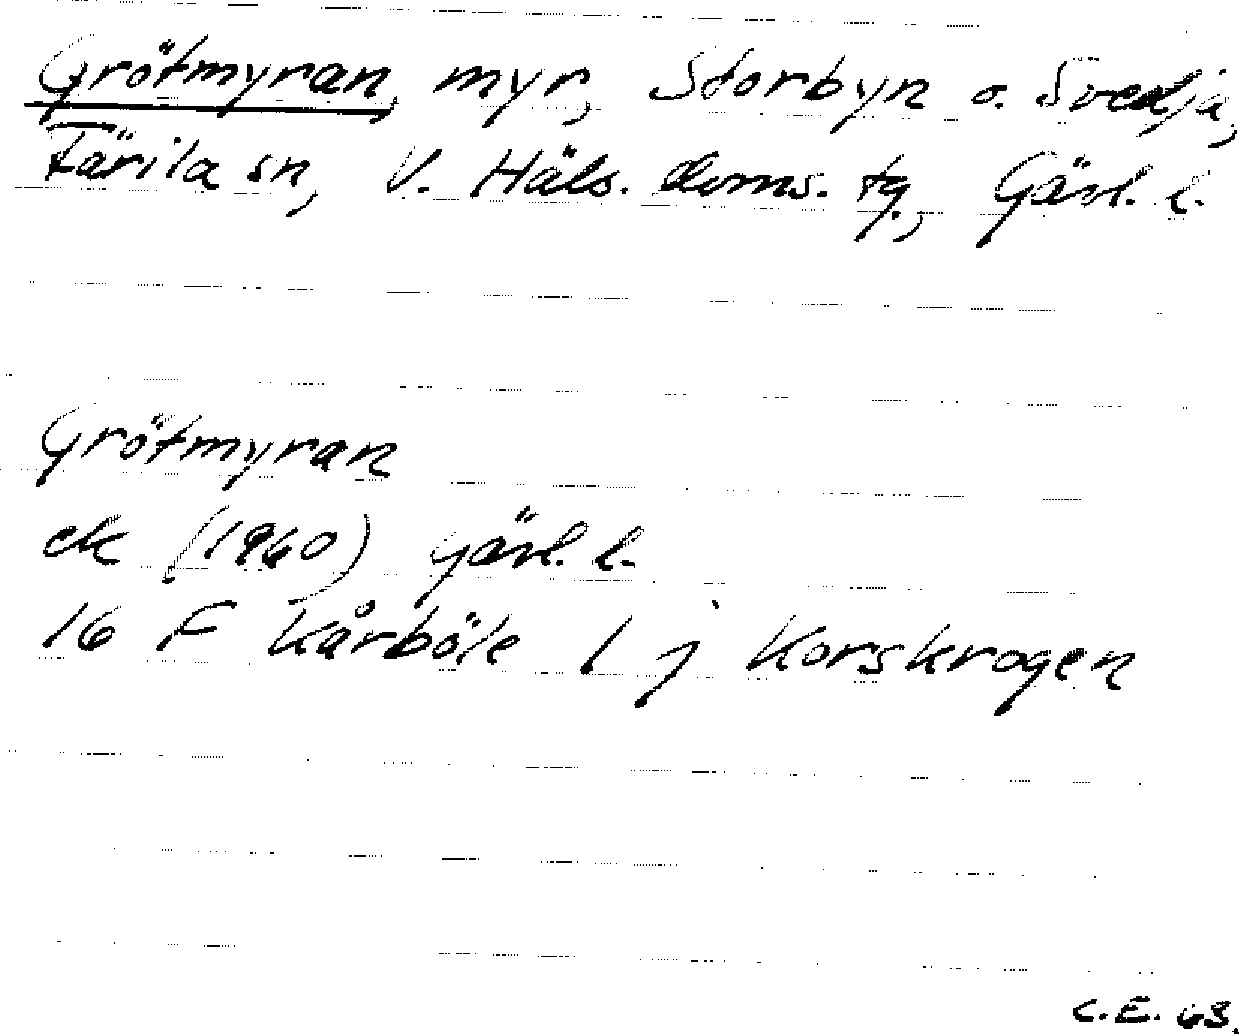 Grötmyran, myr, Storbyn o. Svedja,
Färila sn, V. Häls. doms. tg., Gävl. l.
Grötmyran
ek (1960) Gävl. l.
16 F Kårböle 1 j Korskrogen
C.E. 63.